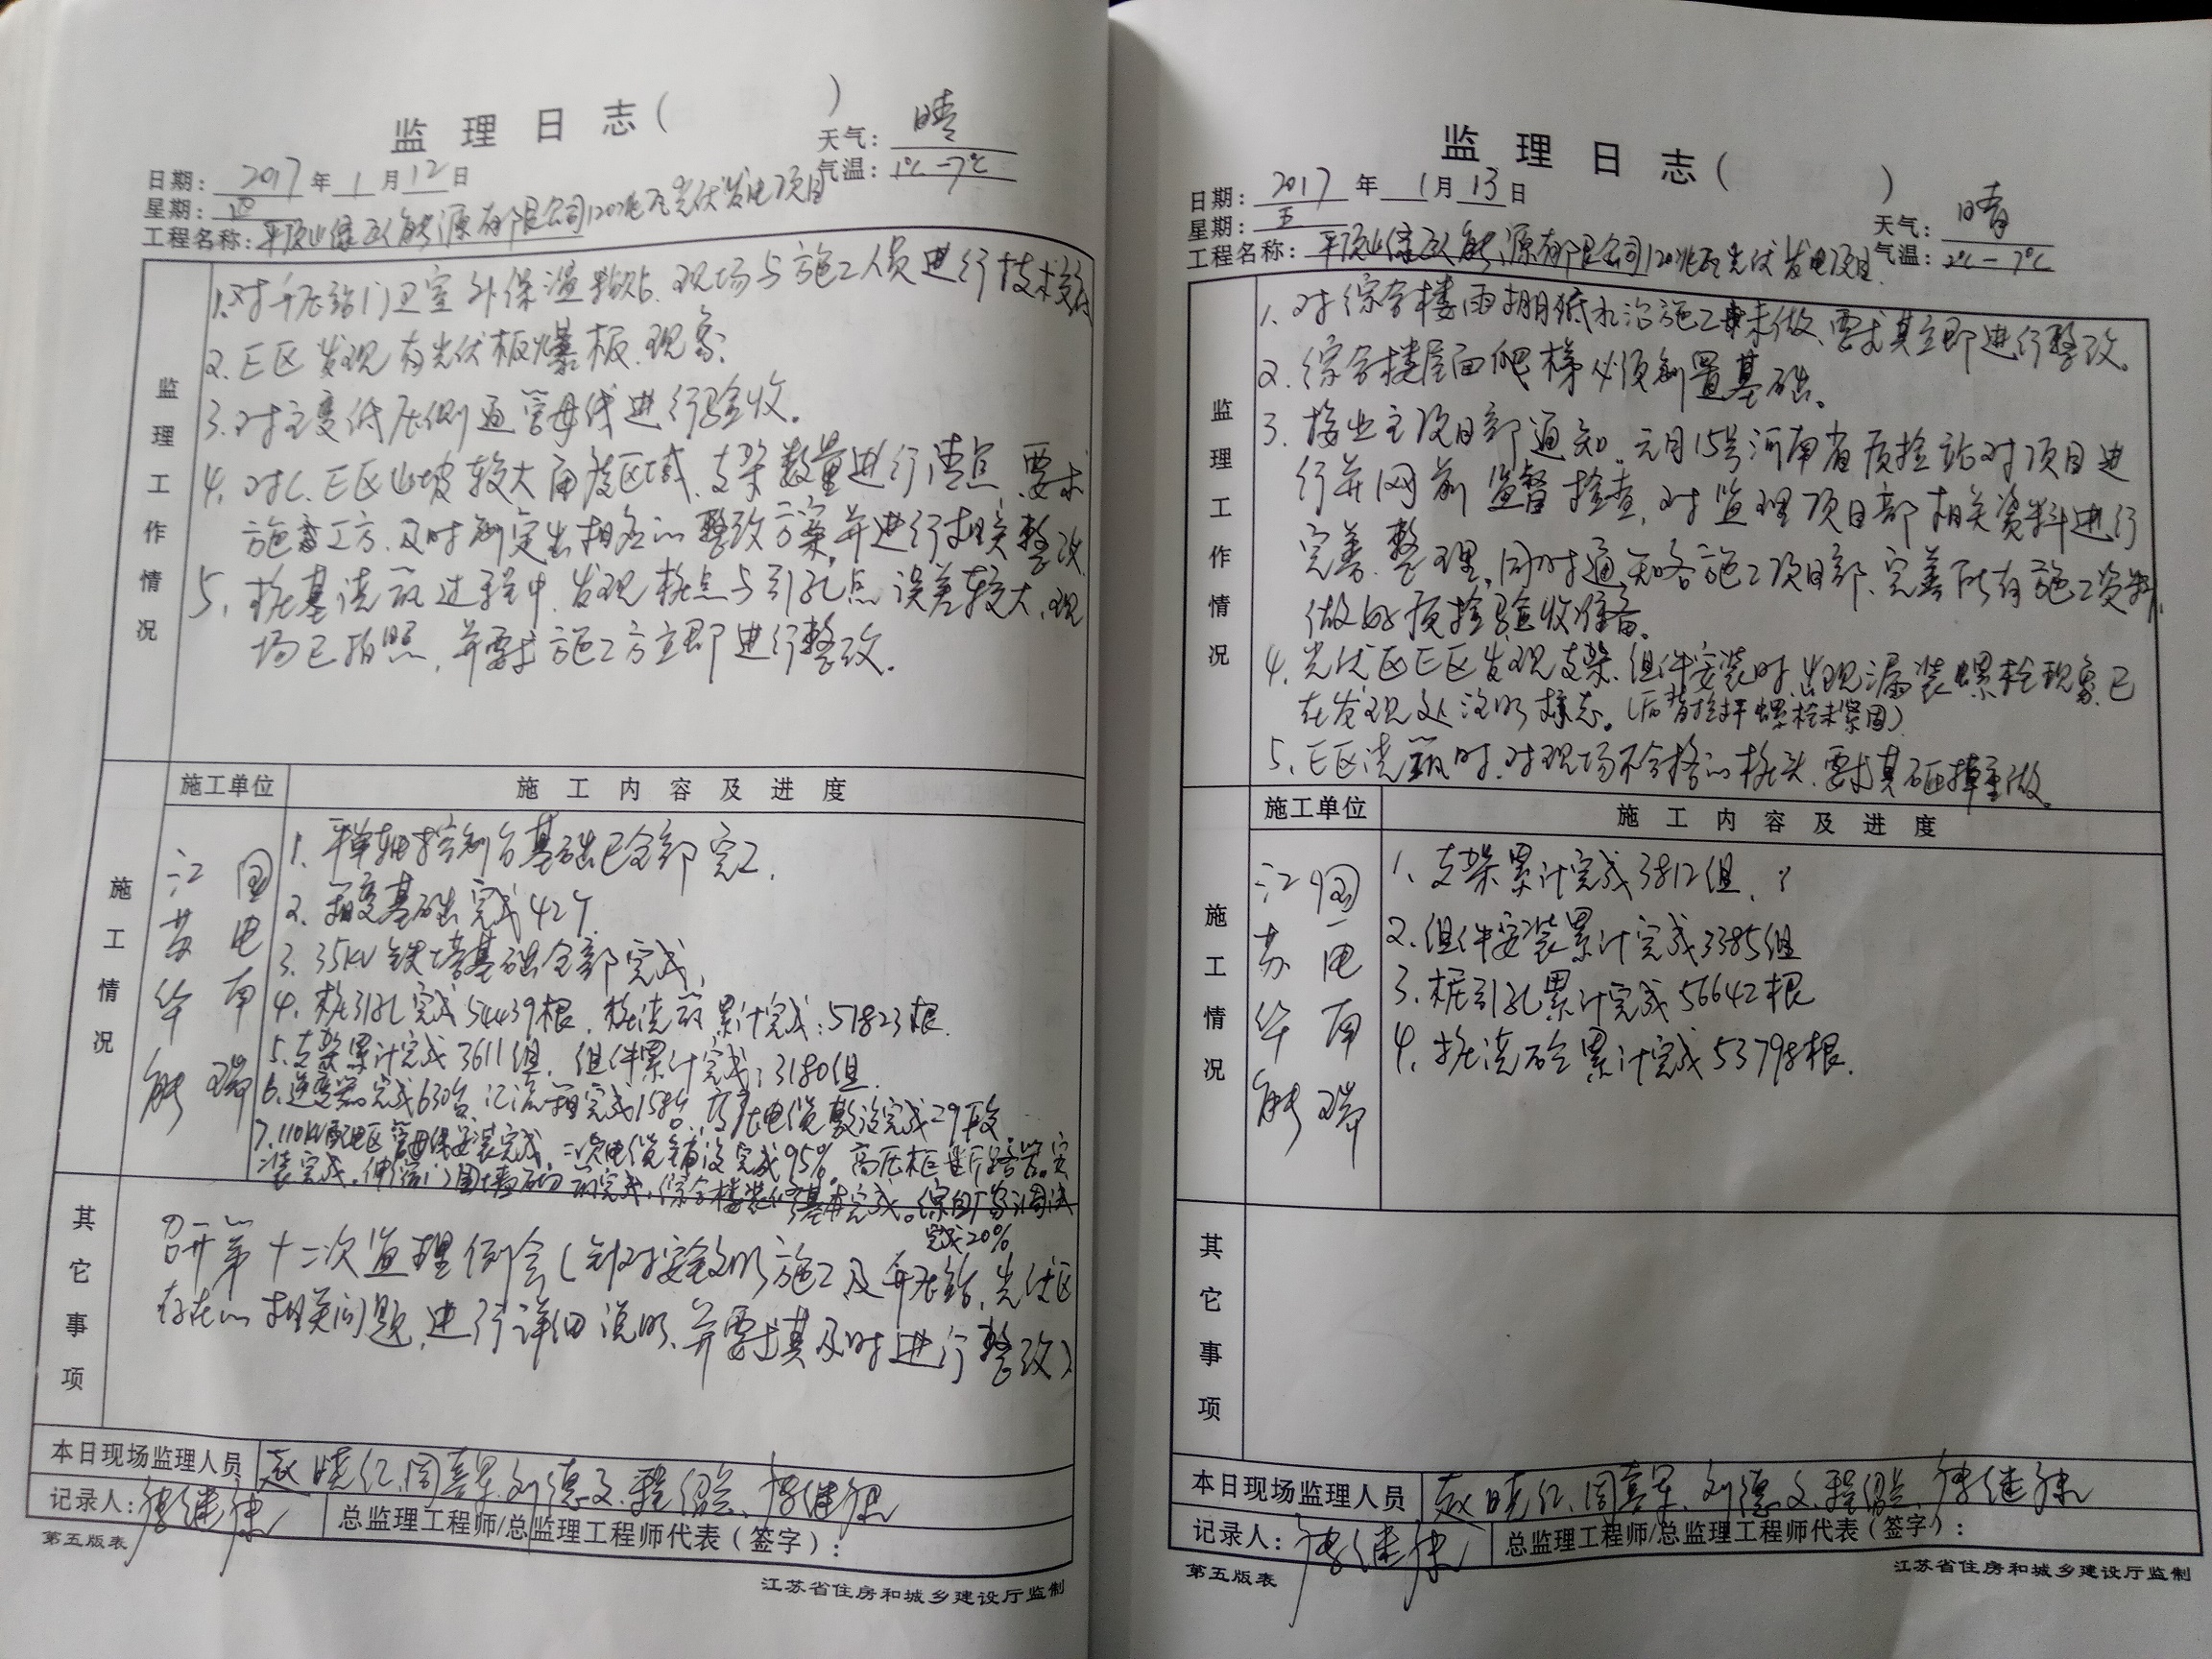 监理日志（ ）
天气：晴
日期：2017年1月12日
气温：1℃-7℃
星期：四
工程名称：平顶山 能源有限公司120兆瓦光伏发电项目
监理工作情况
1.对升压站门卫室外保温粘贴、现场与施工人员进行技术交底
2.E区发现有光伏板爆板现象。
3.对主变低压侧通管母线进行验收。
4.对C、E区山坡较大角度区域、支架数量进行清点,要求
施工方、及时制定出相应的整改方案,并进行相关整改
5、桩基浇筑过程中,发现桩点与引孔点误差较大,现
场已拍照,并要求施工方立即进行整改。
施工情况
施工单位 施工内容及进度
江苏华能
国电南瑞
1.平单轴控制台基础已全部完工.
2、箱变基础完成42个
3、35KV铁塔基础全部完成,
4、桩引孔完成54439根,桩浇筑累计完成:51823根.
5.支架累计完成3611组,组件累计完成:3180组.
6.逆变器完成630台、汇流箱完成158台,高压电缆敷设完成29段
7.110KV配电区管母线安装完成,二次电缆铺设完成95%。高压柜 断路器。安
装完成。伸缩门围墙砌筑完成,综合楼装修基本完成。综自厂家调试
完成20%
其它事项
召开第十二次监理例会(针对安全文明施工及升压站,光伏区
存在的相关问题,进行详细说明、并要求其及时进行整改)
本日现场监理人员 赵晓红、周喜军、刘德文、程 、 继
记录人： 继
总监理工程师/总监理工程师代表（签字）：
第五版表
江苏省住房和城乡建设厅监制
监理日志（ ）
日期：2017年1月13日
天气：晴
星期：五
气温：2℃-7℃
工程名称：平顶山 能源有限公司120兆瓦光伏发电项目
监理工作情况
1、对综合楼雨棚 水沿施工未做,要求其立即进行整改。
2.综合楼屋面爬梯必须制置基础。
3、接业主项目部通知,元月15号河南省质检站对项目进
行并网前监督检查,对监理项目部相关资料进行
完善、整理,同时通知各施工项目部、完善所有施工资料,
做好质检验收准备。
4、光伏区E区发现支架、组件安装时,出现漏装螺栓现象,已
在发现处注明标志。(后背拉杆螺栓未紧固)
5、E区浇筑时,对现场不合格的桩头,要求其砸掉重做。
施工情况
施工单位 施工内容及进度
江苏华能
国电南瑞
1、支架累计完成3812组,
2.组件安装累计完成3385组
3.桩引孔累计完成56642根
4.桩浇砼累计完成53798根.
其它事项
本日现场监理人员 赵晓红、周喜军、刘德文、程 、 继
记录人： 继
总监理工程师/总监理工程师代表（签字）：
第五版表
江苏省住房和城乡建设厅监制